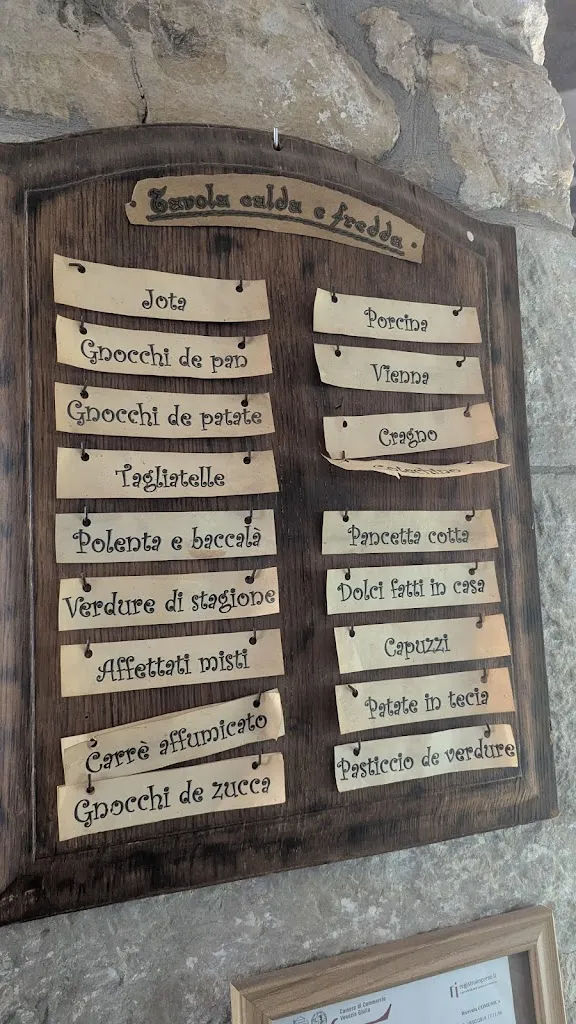 Tavola calda e fredda
Jota
Gnocchi de pan
Gnocchi de patate
Tagliatelle
Polenta e baccalà
Verdure di stagione
Affettati misti
Carrè affumicato
Gnocchi de zucca
Porcina
Vienna
Cragno
Pancetta cotta
Dolci fatti in casa
Capuzzi
Patate in tecia
Pasticcio de verdure
Camera di Commercio
Venezia Giulia
registroimprese.it